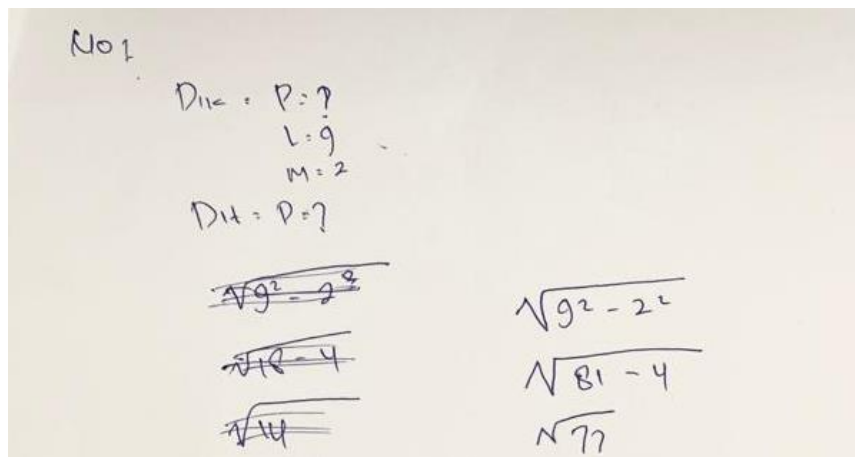 No 1
Dik : P = ?
L = 9
M = 2
Dit : P = ?
√9² - 2²
√18 - 4
√14
√9² - 2²
√81 - 4
√77